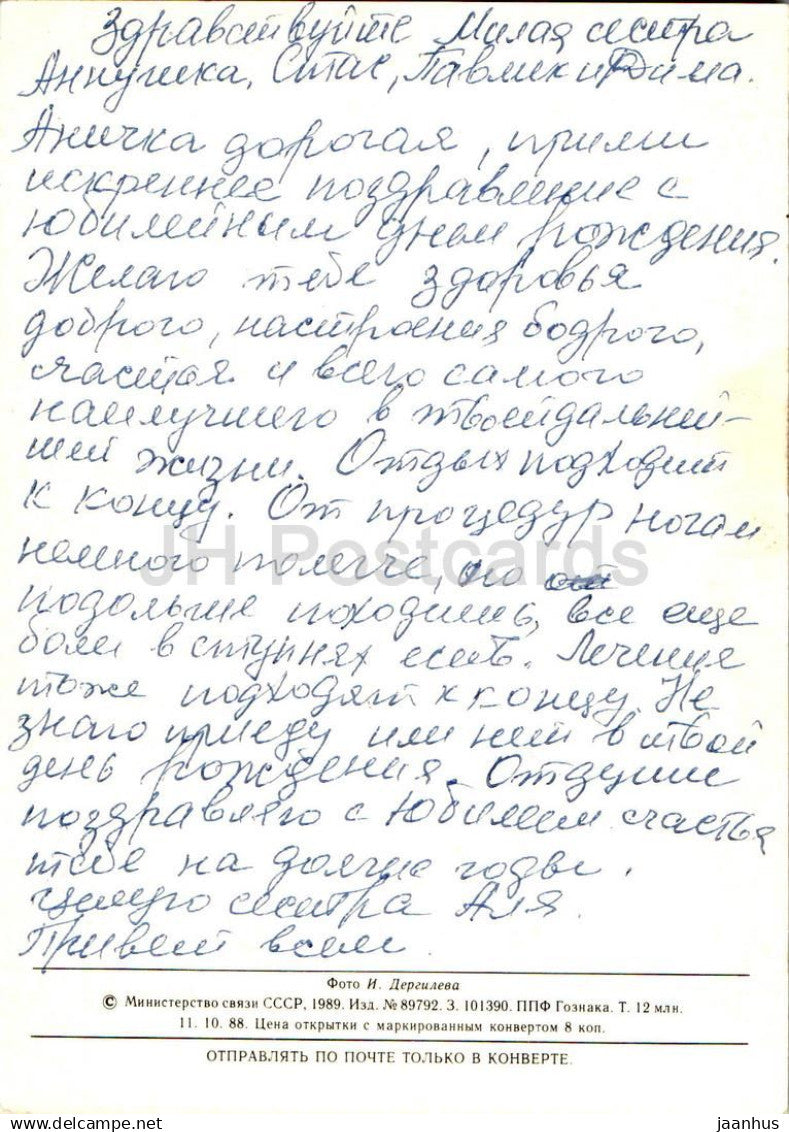 Здравствуйте Милая сестра
Аннушка, Стас, Павлик и Дима.
Аничка дорогая, прими
искреннее поздравление с
юбилейным днем рождения.
Желаю тебе здоровья
доброго, настроения бодрого,
счастья и всего самого
наилучшего в твоей дальней-
шей жизни. Отдых подходит
к концу. От процедур ногам
немного полегче, но
подольше походишь, все еще
боли в ступнях есть. Лечения
тоже подходят к концу. Не
знаю приеду или нет в твой
день рождения. От души
поздравляю с Юбилеем счастья
тебе на долгие годы.
Целую сестра Аля.
Привет всем.
JH Postcards
Фото И. Дергилева
© Министерство связи СССР, 1989. Изд. № 89792. З. 101390. ППФ Гознака. Т. 12 млн.
11. 10. 88. Цена открытки с маркированным конвертом 8 коп.
ОТПРАВЛЯТЬ ПО ПОЧТЕ ТОЛЬКО В КОНВЕРТЕ.
jaanhus